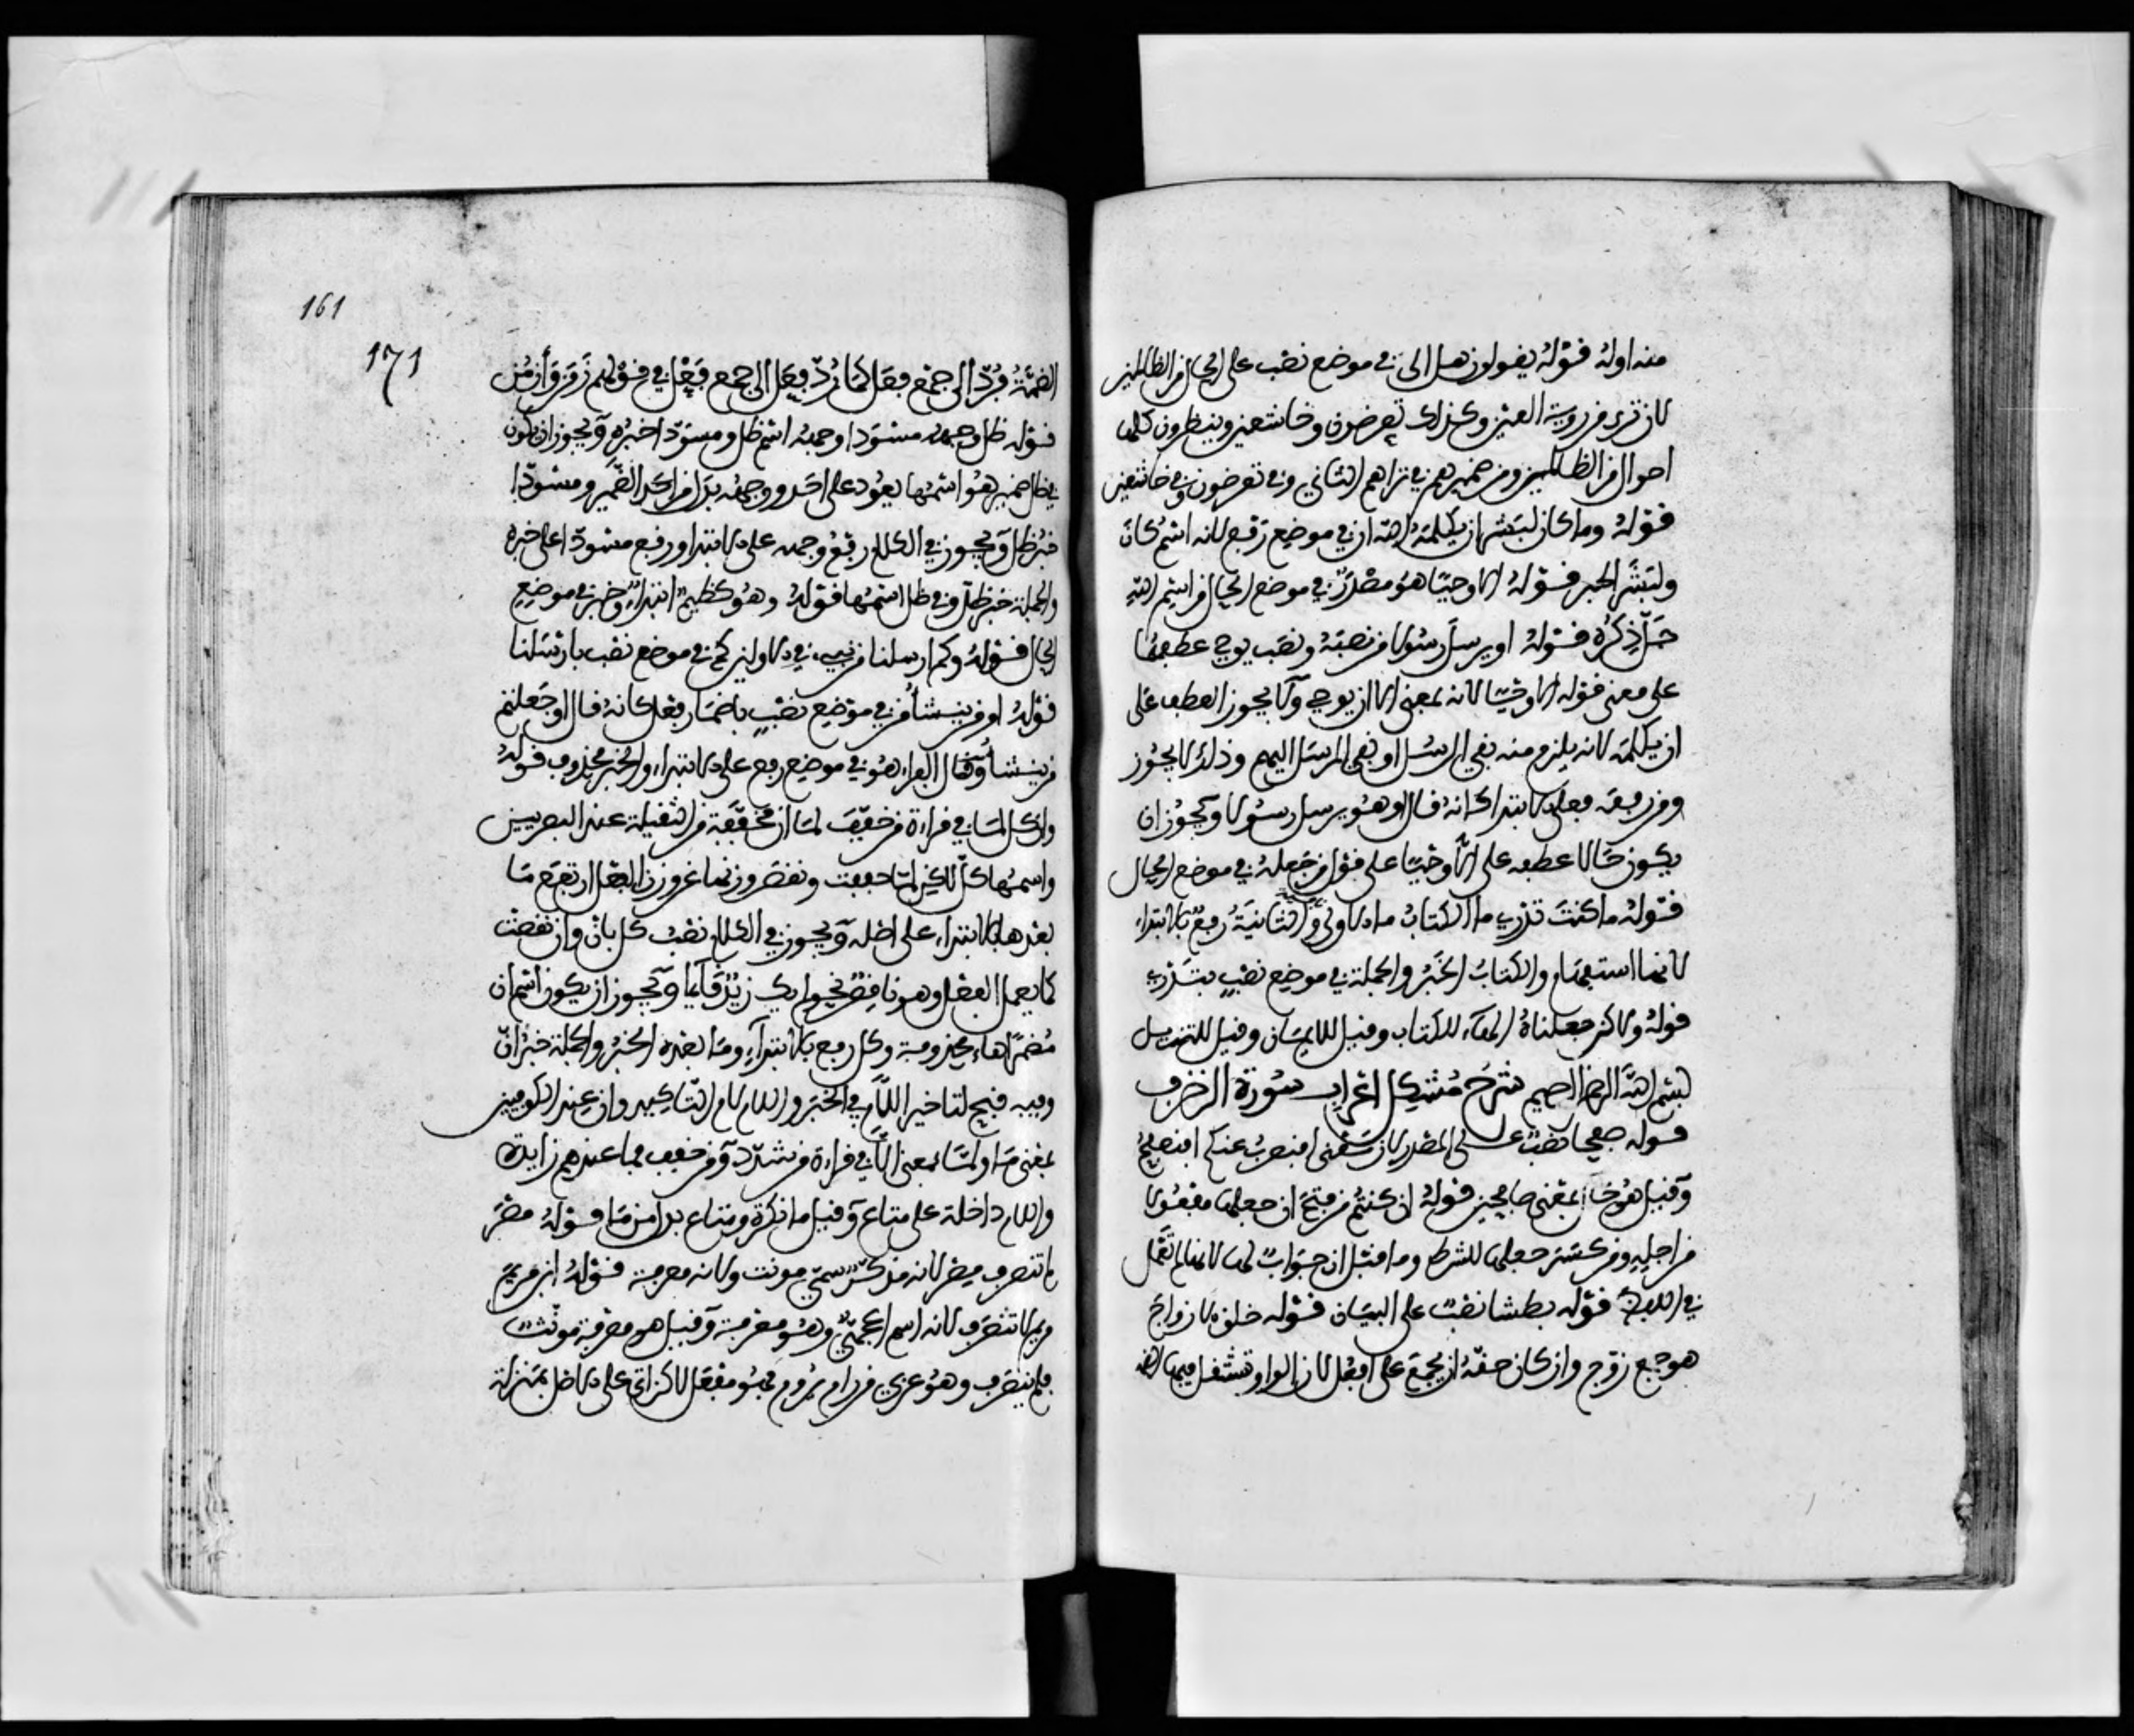 منه اوله قوله يقولون هل الى في موضع نصب على الحال من الظالمين
لان ترى من روية العين وكذلك يعرضون وخاشعين وينظرون كلها
احوال من الظالمين ومن ضميرهم في تراهم الثاني وفي تعرضون وفي خاشعين
قوله وما كان لبشر ان يكلمه الله ان في موضع رفع لانه اسم كان
ولبشر الخبر قوله الا وحيا هو مصدر في موضع الحال من اسم الله
جل ذكره قوله او يرسل رسولا من نصبه ونصب يوحي عطفهما
على معنى قوله الا وحيا لانه بمعنى الا ان يوحي ولا يجوز العطف على
ان يكلمه لانه يلزم منه نفي الرسل او نفي المرسل اليهم وذلك لا يجوز
ومن رفعه فعلى الابتدا كانه قال او هو يرسل رسولا ويجوز ان
يكون حالا عطفه على الا وحيا على قول من جعله في موضع الحال
قوله ما كنت تدري ما الكتاب ما الاولى والثانية رفع بالابتداء
لانها استفهام والكتاب الخبر والجملة في موضع نصب بتدري
قوله ولاكن جعلناه الهاء للكتاب وقيل للايمان وقيل للتنزيل
بسم الله الرحمن الرحيم شرح مشكل اعراب سورة الزخرف
قوله صفحا نصب على المصدر لان معنى افنضرب عنكم افنصفح
وقيل هو حال بمعنى صافحين قوله ان كنتم من فتح ان جعلها مفعولا
من اجله ومن كسر جعلها للشرط وما قبل ان جواب لها لانها لم تعمل
في اللفظ قوله بطشا نصب على البيان قوله خلق الازواج
هو جمع زوج وان كان حقه ان يجمع على افعل لان الواو تستثقل فيها الضـ
161
171
الضمة فرد الى جمع فعل كما رد فعل الى جمع فعل في قولهم زمن وأزمن
قوله ظل وجهه مسودا وجهه اسم ظل ومسودا خبره ويجوز ان يكون
في ظل ضمير هو اسمها يعود على احد ووجهه بدل من احد الضمير ومسودا
خبر ظل ويجوز في الكلام رفع وجهه على الابتدا ورفع مسود على خبره
والجملة خبر ظل وفي ظل اسمها قوله وهو كظيم ابتداء وخبر في موضع
الحال قوله وكم ارسلنا من نبيء في الاولين كم في موضع نصب بارسلنا
قوله اومن ينشأ من في موضع نصب باضمار فعل كانه قال اوجعلتم
من ينشأ وقال الفراء هو في موضع رفع على الابتداء والخبر محذوف قوله
وان كل لما في قراءة من خفف لما ان مخففة من الثقيلة عند البصريين
واسمها كل لاكن لما خففت ونقص وزنها عن وزن الفعل ارتفع ما
بعدها بالابتداء على اصله ويجوز في الكلام نصب كل بان وان نقصت
كما يعمل الفعل وهو ناقص نحو لم يك زيد قايما ويجوز ان يكون اسم ان
مضمرا هاء محذوفة وكل رفع بالابتداء وما بعده الخبر والجملة خبر ان
وفيه قبح لتاخير اللام في الخبر واللام لام التاكيد وان عند الكوفيين
بمعنى ما ولما بمعنى الا في قراءة من شدد ومن خفف فما عندهم زايدة
واللام داخلة على متاع وقيل ما نكرة ومتاع بدل من ما قوله مصر
لم تنصرف مصر لانه مذكر سمي مونث ولانه معرفة قوله ابن مريم
مريم لا تنصرف لانه اسم اعجمي وهو معرفة وقيل هو معرفة مونث
فلم ينصرف وهو عربي من رام يروم فهو مفعل لاكن اتى على الاصل بمنزلة